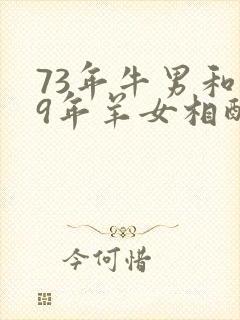 73年牛男和
9年羊女相
今何惜